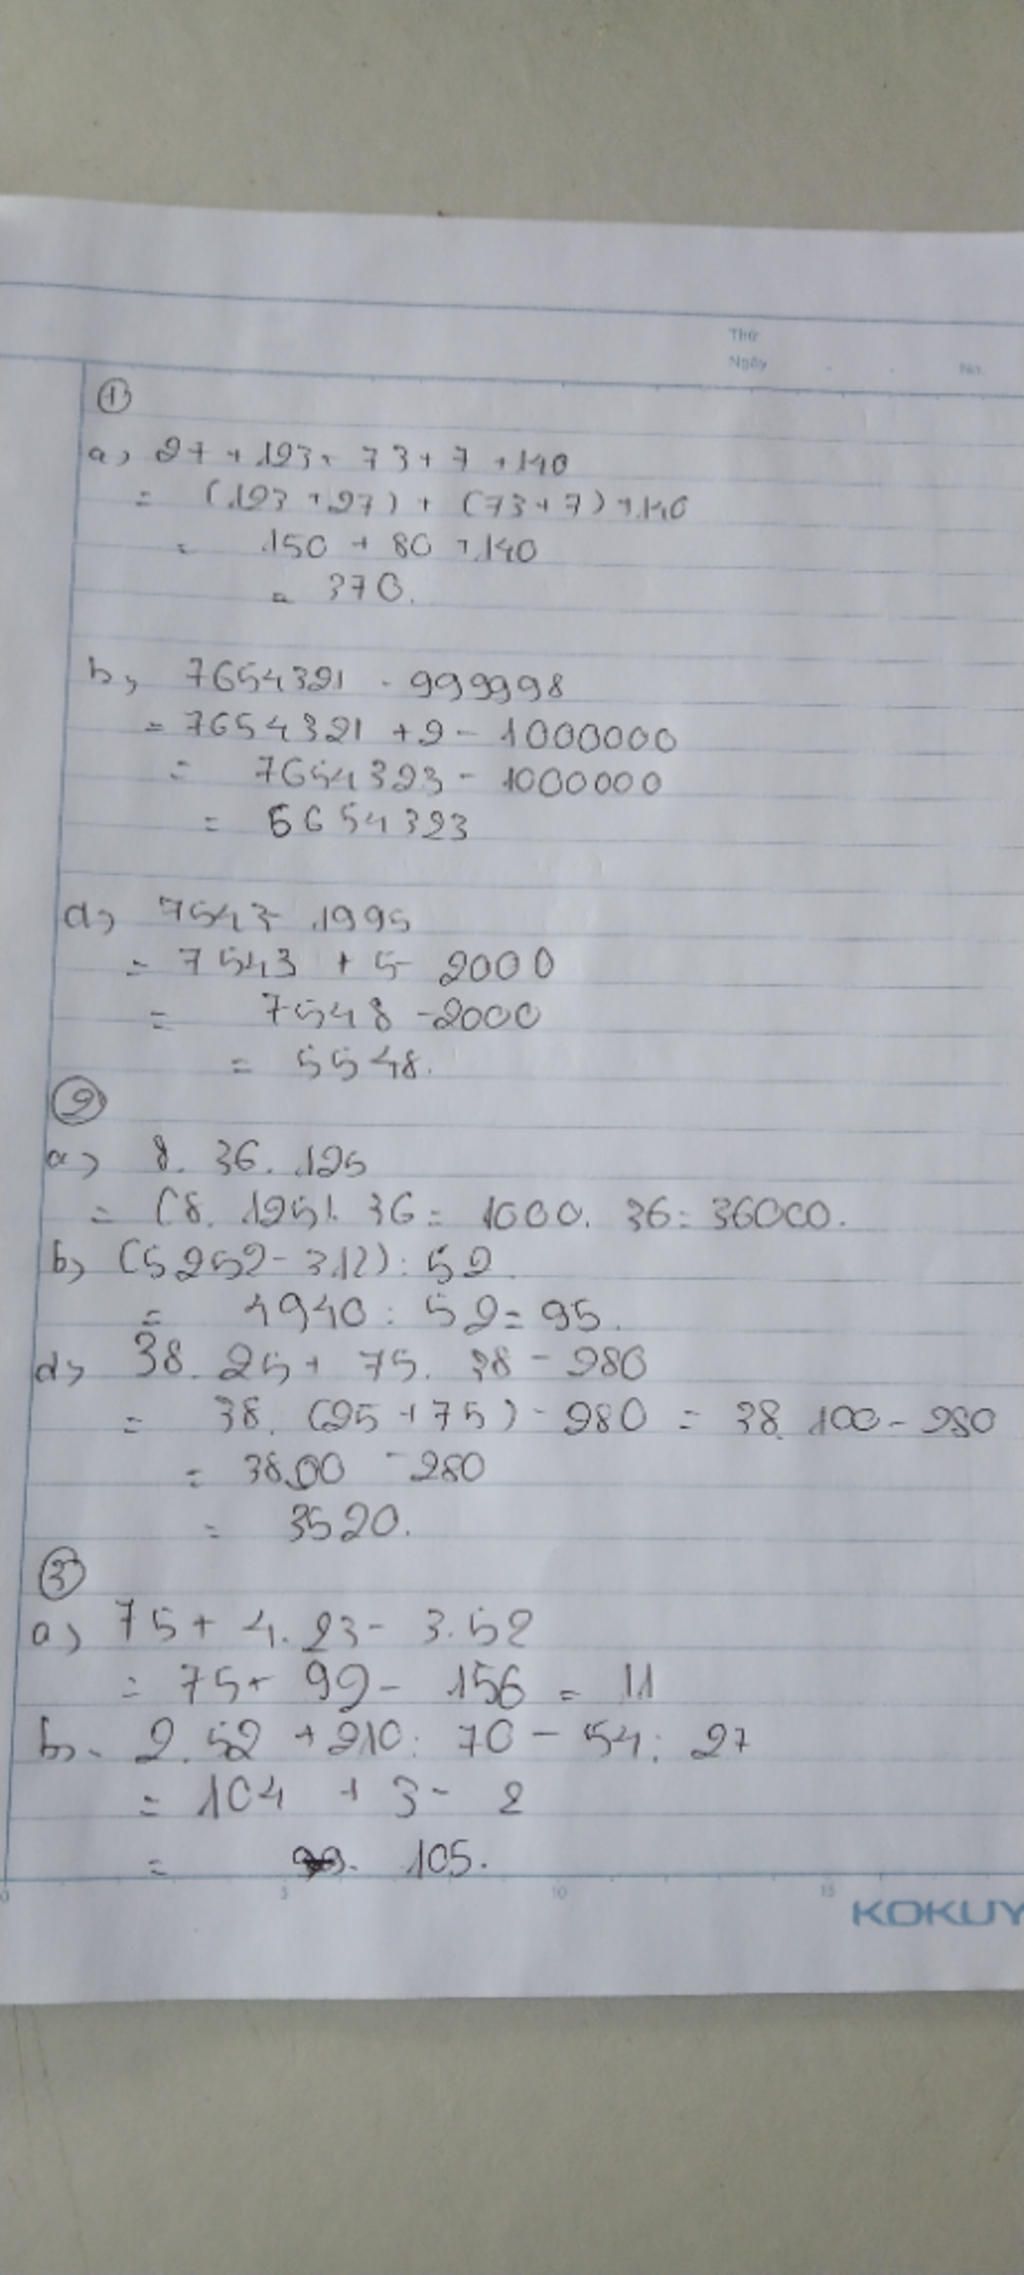 Thứ
Ngày . . No.
①
a, 27 + 123 + 73 + 7 + 140
= (123 + 27) + (73 + 7) + 140
= 150 + 80 + 140
= 370.
b, 7654321 - 999998
= 7654321 + 2 - 1000000
= 7654323 - 1000000
= 6654323
d, 7543 - 1995
= 7543 + 5 - 2000
= 7548 - 2000
= 5548.
②
a, 8. 36. 125
= (8. 125). 36 = 1000. 36 = 36000.
b, (5252 - 312) : 52
= 4940 : 52 = 95.
d, 38. 25 + 75. 38 - 280
= 38. (25 + 75) - 280 = 38. 100 - 280
= 3800 - 280
= 3520.
③
a, 75 + 4. 23 - 3. 52
= 75 + 92 - 156 = 11
b, 2. 52 + 210 : 70 - 54 : 27
= 104 + 3 - 2
= 105.
0 5 10 15
KOKUY